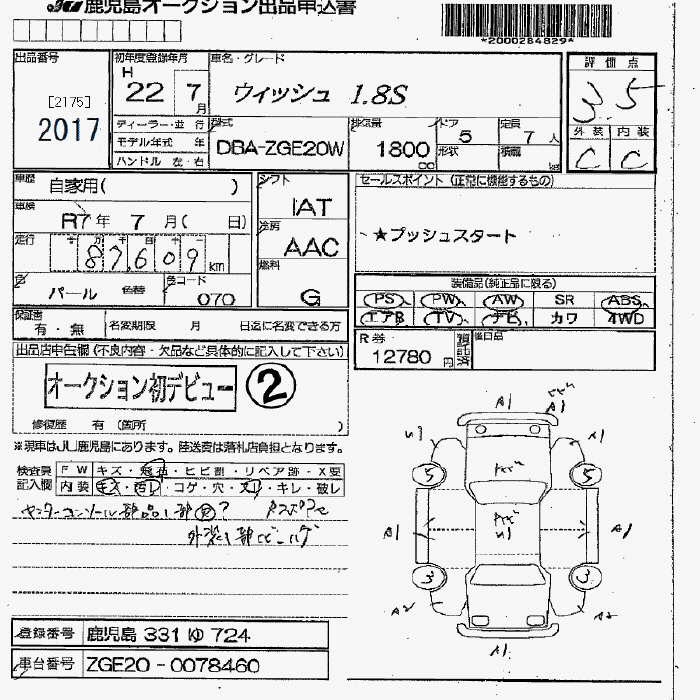 鹿児島オークション出品申込書
*2000284829*
出品番号
[2175]
2017
初年度登録年月
H 22 7 月
車名・グレード
ウィッシュ 1.8S
評価点
3.5
外装 内装
C C
ディーラー・並行
モデル年式 年
ハンドル 左・右
型式
DBA-ZGE20W
排気量
1800 cc
ドア
5
形状
定員
7 人
積載 kg
車歴
自家用( )
車検
R7年 7月( 日)
走行
十 万 千 百 十
87,609 km
色
パール 色替
色コード
070
シフト
IAT
冷房
AAC
燃料
G
セールスポイント (正常に機能するもの)
★プッシュスタート
装備品(純正品に限る)
PS PW AW SR ABS
エアB TV ナビ カワ 4WD
保証書
有・無
名変期限 月 日迄に名変できる方
R券
12780 円
預託済
後日品
出品店申告欄 (不良内容・欠品など具体的に記入して下さい)
オークション初デビュー ②
修復歴 有 (箇所 )
※現車はJU鹿児島にあります。陸送費は落札店負担となります。
検査員 FW キズ・飛石・ヒビ割・リペア跡・X要
記入欄 内装 キズ・汚レ・コゲ・穴・スレ・キレ・破レ
A1 A1
A1
5 5
A1 A1
3 3
A2 A2
A1
登録番号 鹿児島 331 ゆ 724
車台番号 ZGE20-0078460